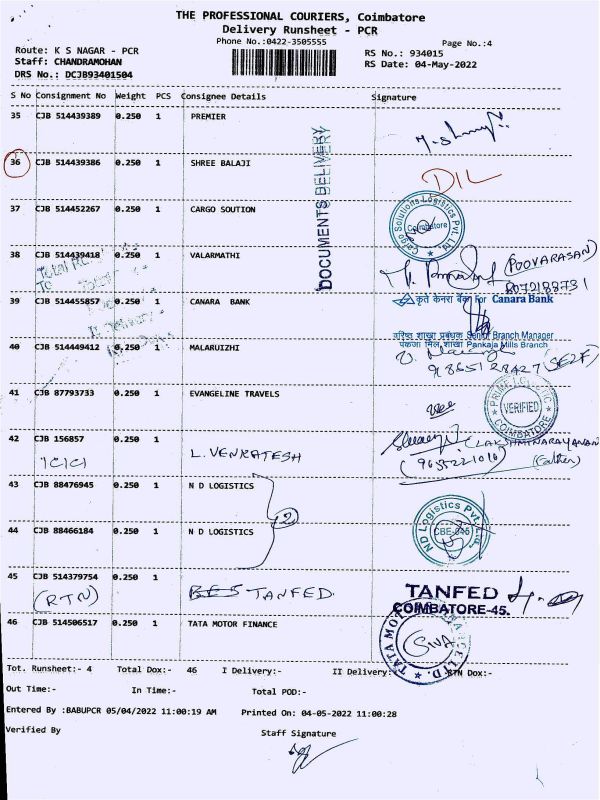 THE PROFESSIONAL COURIERS, Coimbatore
Delivery Runsheet - PCR
Phone No.:0422-3505555
Page No.:4
Route: K S NAGAR - PCR
RS No.: 934015
Staff: CHANDRAMOHAN
RS Date: 04-May-2022
DRS No.: DCJB93401504
S No Consignment No Weight PCS Consignee Details Signature
35 CJB 514439389 0.250 1 PREMIER
36 CJB 514439386 0.250 1 SHREE BALAJI DIL
DOCUMENTS DELIVERY
37 CJB 514452267 0.250 1 CARGO SOUTION
Cargo Solutions Logistics Pvt. Ltd
Coimbatore
38 CJB 514439418 0.250 1 VALARMATHI
(POOVARASAN)
39 CJB 514455857 0.250 1 CANARA BANK
कृते केनरा बैंक For Canara Bank
वरिष्ठ शाखा प्रबंधक Senior Branch Manager
पंकजा मिल शाखा Pankaja Mills Branch
40 CJB 514449412 0.250 1 MALARUIZHI
9865128427 (SELF)
41 CJB 87793733 0.250 1 EVANGELINE TRAVELS
VERIFIED
COIMBATORE
42 CJB 156857 0.250 1
ICICI L. VENKATESH
(LAKSHMINARAYANAN
(Father)
43 CJB 88476945 0.250 1 N D LOGISTICS
2
44 CJB 88466184 0.250 1 N D LOGISTICS
ND Logistics Pvt. Ltd.
CBE-045
45 CJB 514379754 0.250 1
(RTN) BES TANFED
TANFED
COIMBATORE-45.
46 CJB 514506517 0.250 1 TATA MOTOR FINANCE
SIVA
Tot. Runsheet:- 4 Total Dox:- 46 I Delivery:- II Delivery:- RTN Dox:-
Out Time:- In Time:- Total POD:-
Entered By :BABUPCR 05/04/2022 11:00:19 AM Printed On: 04-05-2022 11:00:28
Verified By Staff Signature